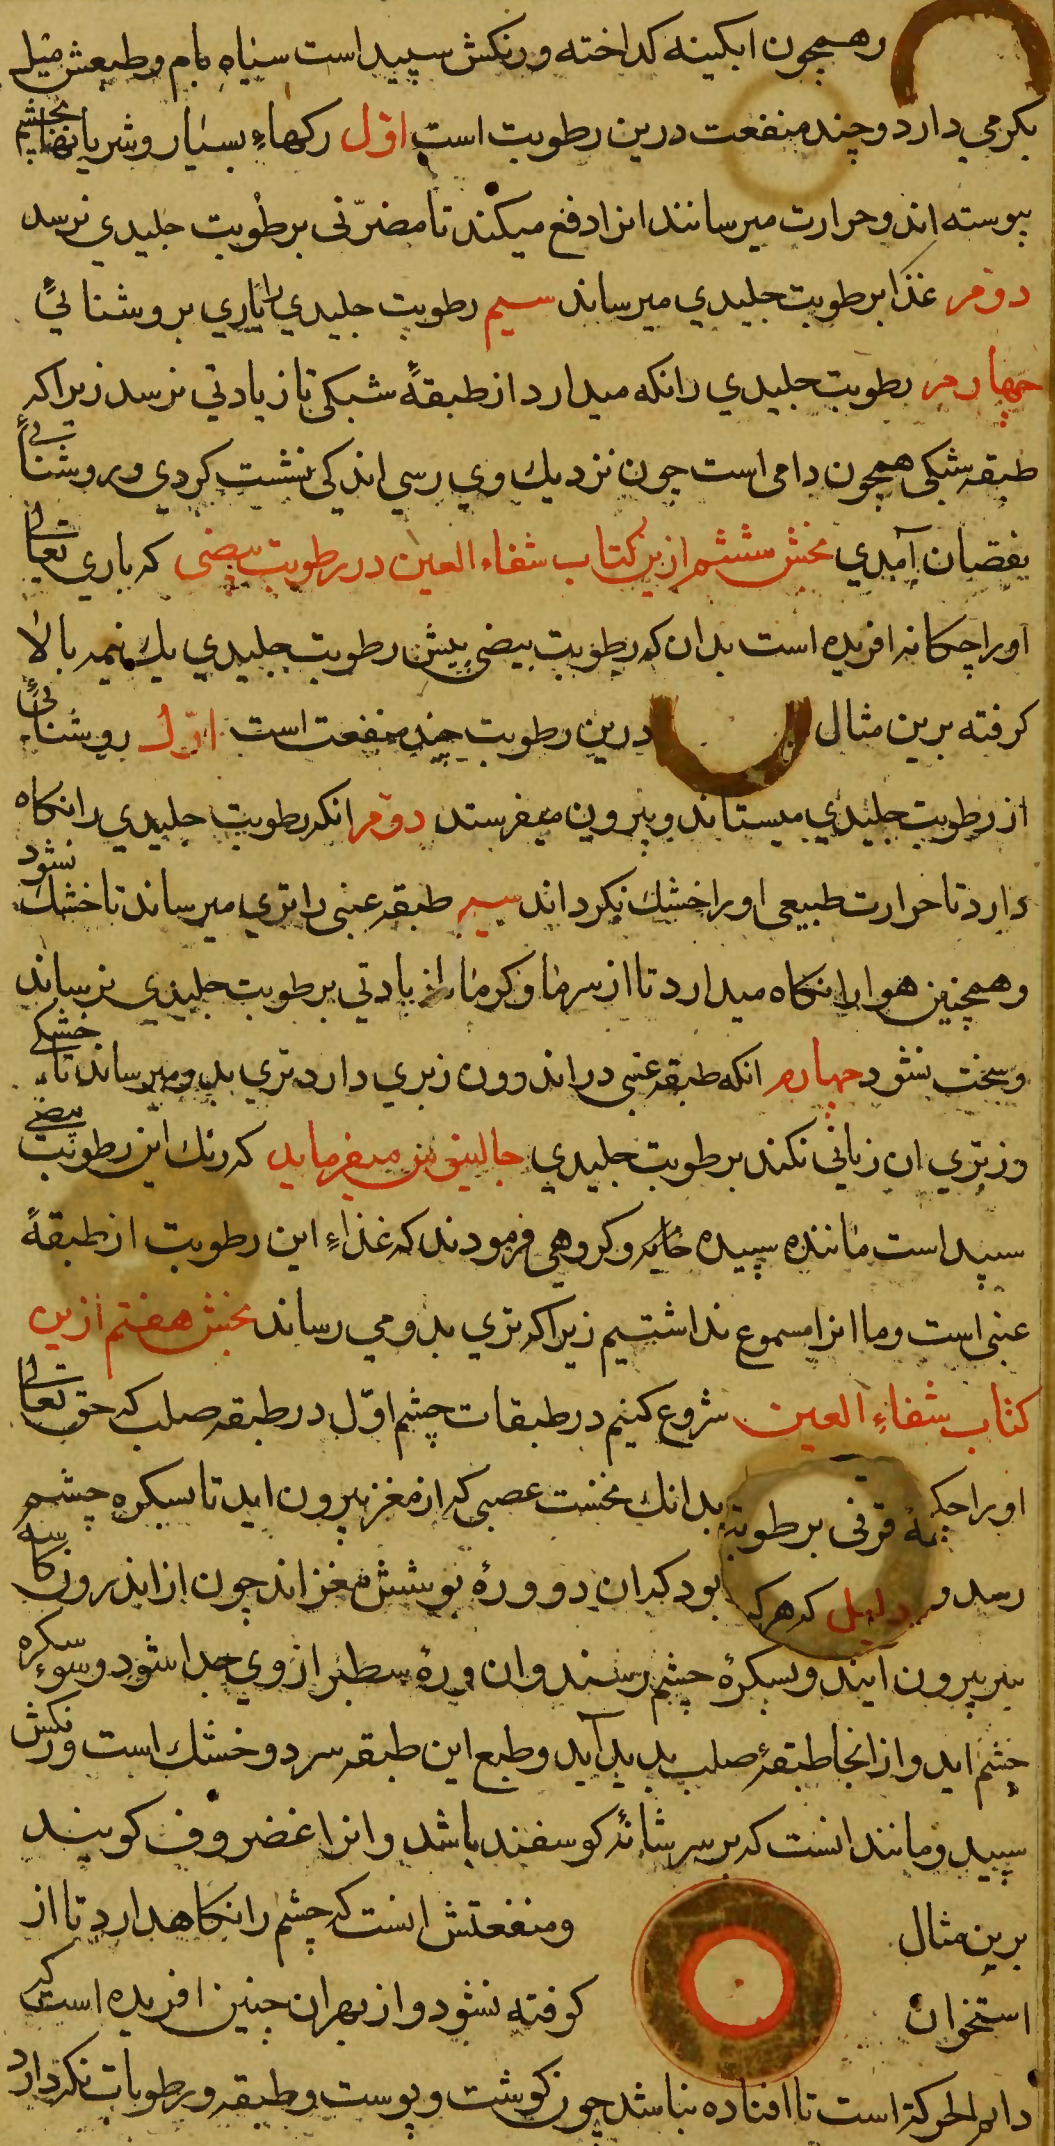 و همچون ابکینه کداخته و رنکش سپید است سیاه بام و طبعش میل
بکرمی دارد و چند منفعت درین رطوبت است اوّل رکهاء بسیار و شریانها بچشم
پیوسته اند و حرارت میرسانند انرا دفع میکند تا مضرّتی برطوبت جلیدی نرسد
دوّم غذا برطوبت جلیدی میرساند سیم رطوبت جلیدی را یاری بروشنائی
چهارم رطوبت جلیدی را نکه میدارد از طبقهٔ شبکی تا زیادتی نرسد زیرا که
طبقه شبکی همچون دامی است چون نزدیك وی رسی اندکی نشست کردی و بروشنائی
نقصان آمدی بخش ششم ازین کتاب شفاء العین در رطوبت بیضی که باری تعالی
اورا چکانه افریده است بدان که رطوبت بیضی پیش رطوبت جلیدی یك نیمه بالا
کرفته برین مثال درین رطوبت چند منفعت است اوّل روشنائی
از رطوبت جلیدی میستاند و بیرون میفرستد دوّم انکه رطوبت جلیدی را نکاه
دارد تا حرارت طبیعی اورا خشك نکرداند سیم طبقه عنبی را تری میرساند تا خشك نشود
و همچنین هوا را نکاه میدارد تا از سرما و کرما زیادتی برطوبت جلیدی نرساند
و سخت نشود چهارم انکه طبقه عنبی در اندرون زبری دارد تری بدو میرساند تا خشکی
و زبری ان زیانی نکند برطوبت جلیدی جالینوس میفرماید که رنك این رطوبت بیضی
سپید است ماننده سپیده خایه و کروهی فرمودند که غذاء این رطوبت از طبقهٔ
عنبی است و ما انرا مسموع نداشتیم زیرا که تری بدو می رساند بخش هفتم ازین
کتاب شفاء العین شروع کنیم در طبقات چشم اوّل در طبقه صلب که حق تعالی
اورا بدانك نخست عصبی که از مغز بیرون اید تا بسکره چشم
رسد و بود که ان دو ورهٔ پوشش مغز اند چون از اندرون کاسه
سر بیرون آیند و بسکرهٔ چشم رسند و ان ورهٔ سطبر از وی جدا شود و سوء سکره
چشم اید و از انجا طبقهٔ صلب پدید آید و طبع این طبقه سرد و خشك است و رنکش
سپید و مانند انست که بر سر شانهٔ کوسفند باشد و انرا غضروف کویند
برین مثال و منفعتش انست که چشم را نکاهدارد تا از
استخوان کوفته نشود و از بهر ان چنین افریده است که
دایم الحرکة است تا افتاده نباشد چون کوشت و پوست و طبقه و رطوبات نکه دارد